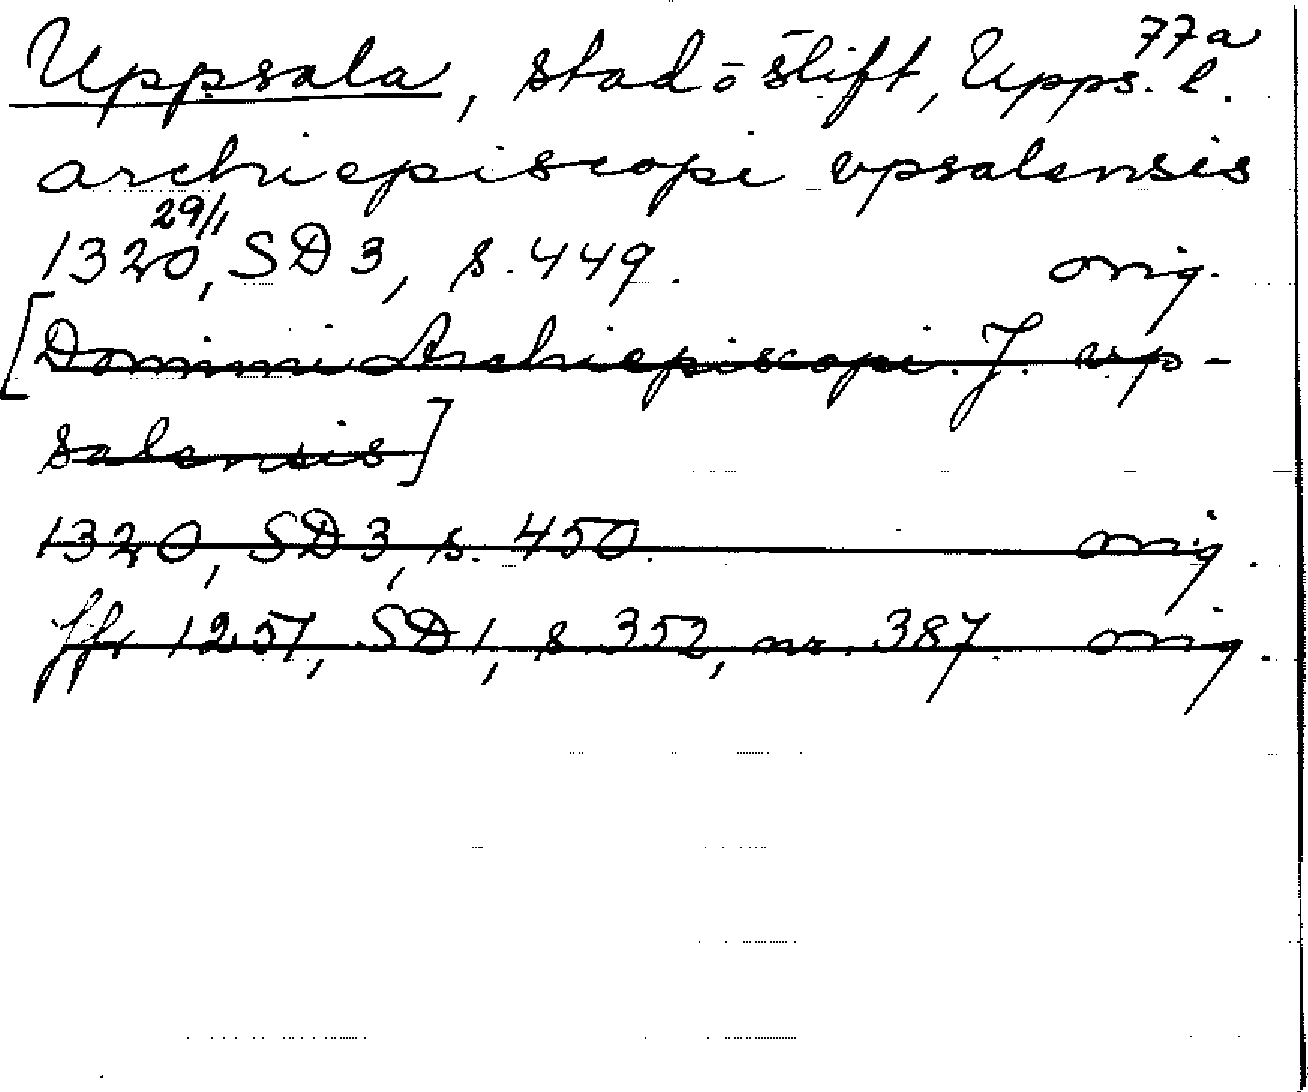 77a
Uppsala, stad o stift, Upps. l.
archiepiscopi vpsalensis
29/1
1320, SD 3, s. 449. orig.
[Domini Archiepiscopi. J. vp-
salensis]
1320, SD 3, s. 450. orig.
ffr 1251, SD 1, s. 352, nr. 387 orig.